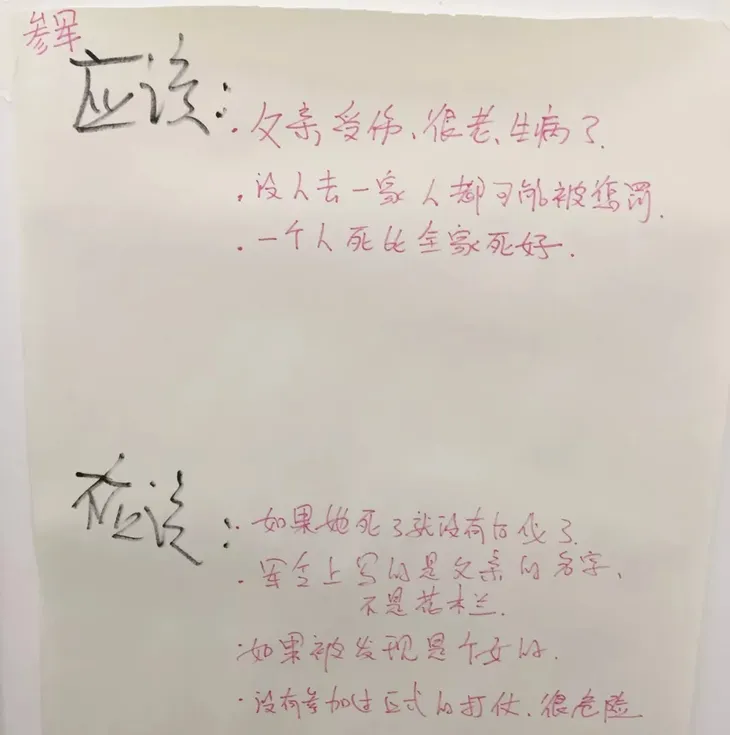 参军
应该：
· 父亲受伤、很老、生病了.
· 没人去一家人都可能被惩罚.
· 一个人死比全家死好.
不应该：
· 如果她死了就没有后代了.
· 军令上写的是父亲的名字、
不是花木兰.
· 如果被发现是个女的.
· 没有参加过正式的打仗、很危险